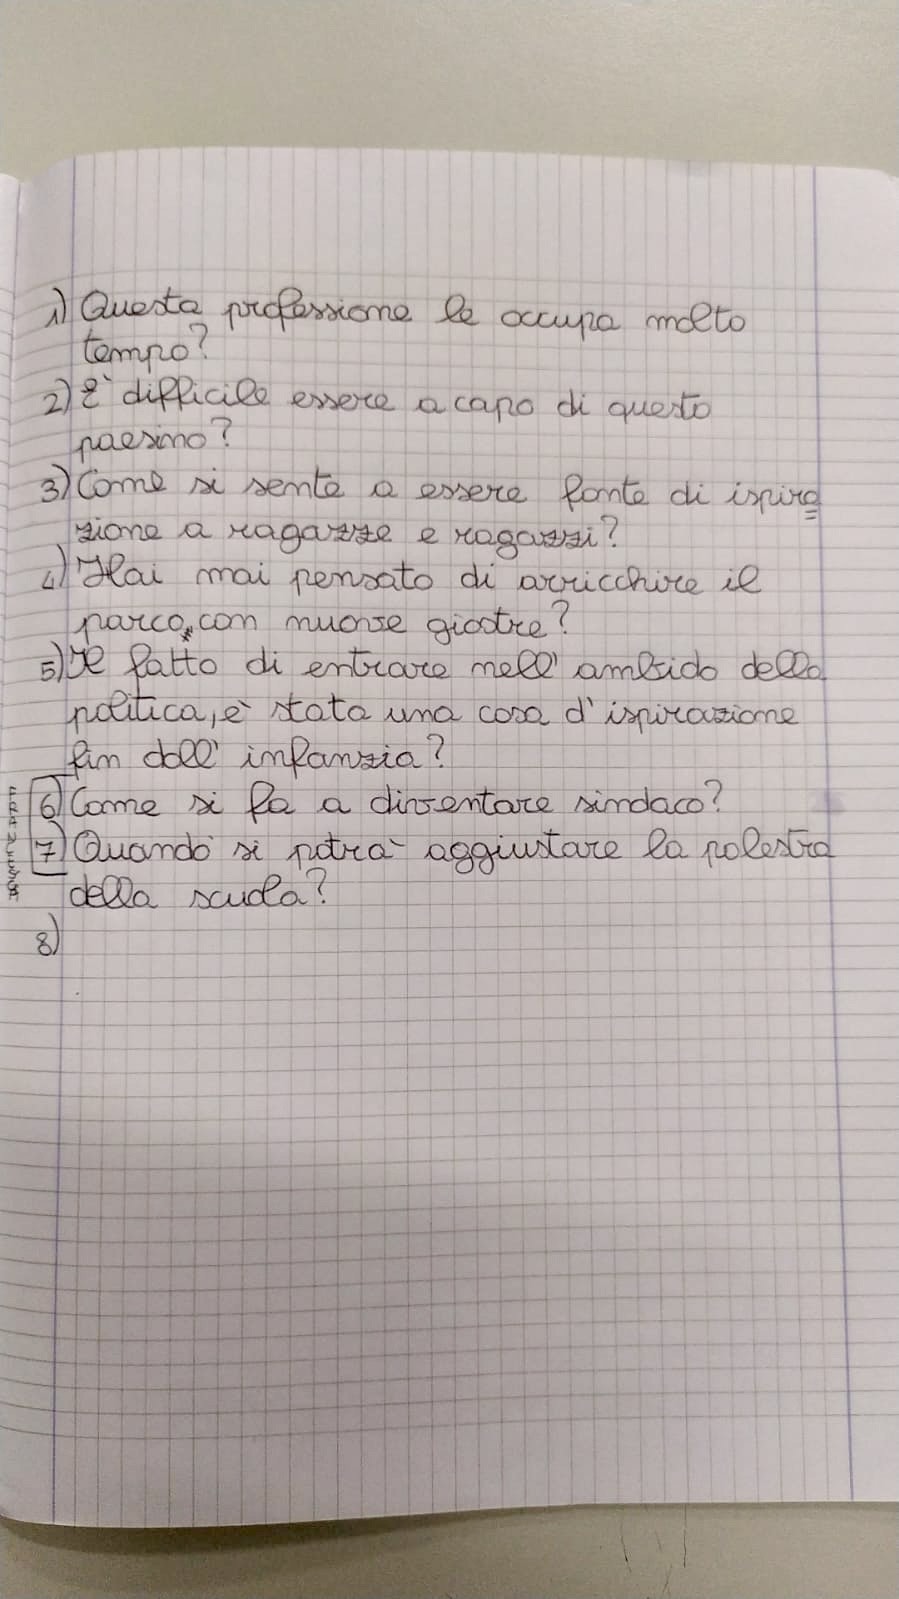 1) Questa professione le occupa molto
tempo?
2) È difficile essere a capo di questo
paesino?
3) Come si sente a essere fonte di ispira
zione a ragazze e ragazzi?
4) Hai mai pensato di arricchire il
parco, con nuove giostre?
5) Il fatto di entrare nell' ambido della
politica, è stata una cosa d' ispirazione
fin dall' infanzia?
6) Come si fa a diventare sindaco?
7) Quando si potrà aggiustare la palestra
della scuola?
8)